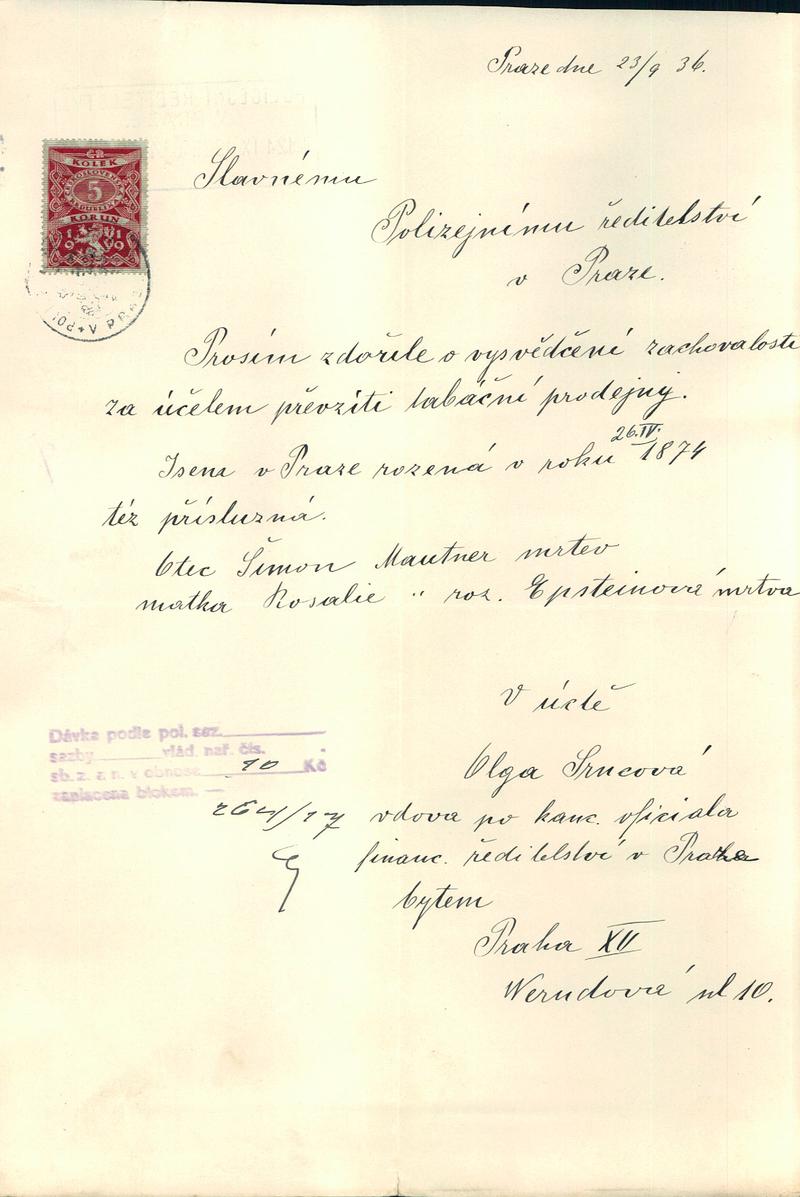 Praze dne 23/9 36.
ČR
KOLEK
5
KORUN
1919
Slavnému
Polizejnímu ředitelství
v Praze.
V PRAZE
Prosím zdořile o vysvědčení zachovalosti
za účelem převziti tabáční prodejny.
26.IV.
Jsem v Praze rozená v roku 1874
téz přísluzná.
Otec Šimon Mautner mrtev
matka Rosalie " roz. Epsteinová mrtva
V úctě
Dávka podle pol. saz.
sazby vlád. nař. čís.
sb. z. a n. v obnose 10 Kč
zaplacena blokem. —
264/17
Olga Srncová
vdova po kanc. oficiala
financ. ředitelství v Praze
bytem
Praha XII
Werndová ul 10.